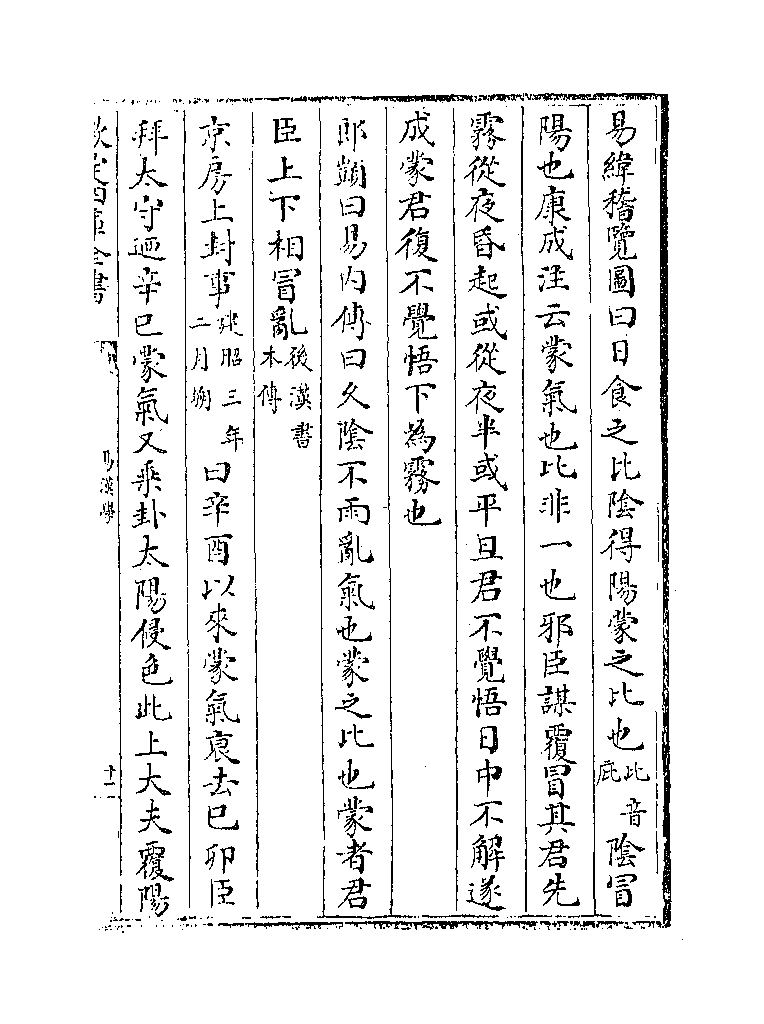 易緯稽覽圖曰日食之比陰得陽蒙之比也比音庇陰冒
陽也康成注云蒙氣也比非一也邪臣謀覆冒其君先
霧從夜昏起或從夜半或平旦君不覺悟日中不解遂
成蒙君復不覺悟下為霧也
郎顗曰易内傳曰久陰不雨亂氣也蒙之比也蒙者君
臣上下相冒亂後漢書本傳
京房上封事建昭三年二月朔曰辛酉以來蒙氣衰去巳夘臣
拜太守迺辛巳蒙氣又乘卦太陽侵色此上大夫覆陽
欽定四庫全書
易漢學
十二